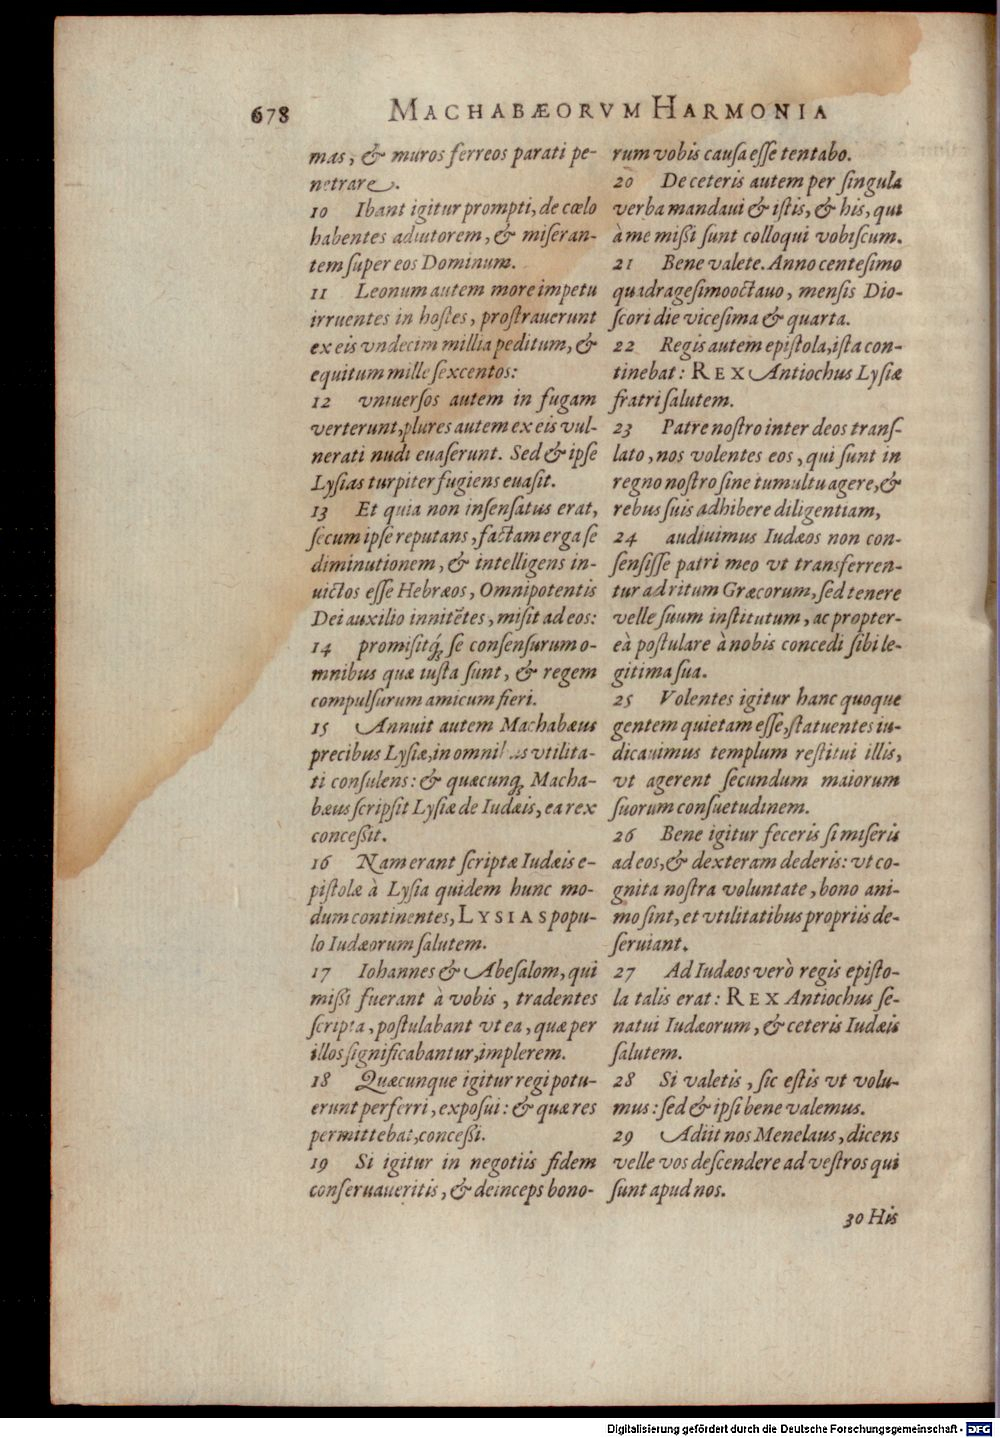 678 MACHABÆORVM HARMONIA
mas, & muros ferreos parati pe-
netrare.
10 Ibant igitur prompti, de cœlo
habentes adiutorem, & miseran-
tem super eos Dominum.
11 Leonum autem more impetu
irruentes in hostes, prostrauerunt
ex eis vndecim millia peditum, &
equitum mille sexcentos:
12 vniuersos autem in fugam
verterunt, plures autem ex eis vul-
nerati nudi euaserunt. Sed & ipse
Lysias turpiter fugiens euasit.
13 Et quia non insensatus erat,
secum ipse reputans, factam erga se
diminutionem, & intelligens in-
uictos esse Hebræos, Omnipotentis
Dei auxilio innitẽtes, misit ad eos:
14 promisitq́; se consensurum o-
mnibus quæ iusta sunt, & regem
compulsurum amicum fieri.
15 Annuit autem Machabæus
precibus Lysiæ, in omnibus vtilita-
ti consulens: & quæcunq; Macha-
bæus scripsit Lysiæ de Iudæis, ea rex
concessit.
16 Nam erant scriptæ Iudæis e-
pistolæ à Lysia quidem hunc mo-
dum continentes, LYSIAS popu-
lo Iudæorum salutem.
17 Iohannes & Abesalom, qui
missi fuerant à vobis, tradentes
scripta, postulabant vt ea, quæ per
illos significabantur, implerem.
18 Quæcunque igitur regi potu-
erunt perferri, exposui: & quæ res
permittebat, concessi.
19 Si igitur in negotiis fidem
conseruaueritis, & deinceps bono-
rum vobis causa esse tentabo.
20 De ceteris autem per singula
verba mandaui & istis, & his, qui
à me missi sunt colloqui vobiscum.
21 Bene valete. Anno centesimo
quadragesimooctauo, mensis Dio-
scori die vicesima & quarta.
22 Regis autem epistola, ista con-
tinebat: REX Antiochus Lysiæ
fratri salutem.
23 Patre nostro inter deos trans-
lato, nos volentes eos, qui sunt in
regno nostro sine tumultu agere, &
rebus suis adhibere diligentiam,
24 audiuimus Iudæos non con-
sensisse patri meo vt transferren-
tur ad ritum Græcorum, sed tenere
velle suum institutum, ac propter-
eà postulare à nobis concedi sibi le-
gitima sua.
25 Volentes igitur hanc quoque
gentem quietam esse, statuentes iu-
dicauimus templum restitui illis,
vt agerent secundum maiorum
suorum consuetudinem.
26 Bene igitur feceris si miseris
ad eos, & dexteram dederis: vt co-
gnita nostra voluntate, bono ani-
mo sint, et vtilitatibus propriis de-
seruiant.
27 Ad Iudæos verò regis episto-
la talis erat: REX Antiochus se-
natui Iudæorum, & ceteris Iudæis
salutem.
28 Si valetis, sic estis vt volu-
mus: sed & ipsi bene valemus.
29 Adiit nos Menelaus, dicens
velle vos descendere ad vestros qui
sunt apud nos.
30 His
Digitalisierung gefördert durch die Deutsche Forschungsgemeinschaft - DFG